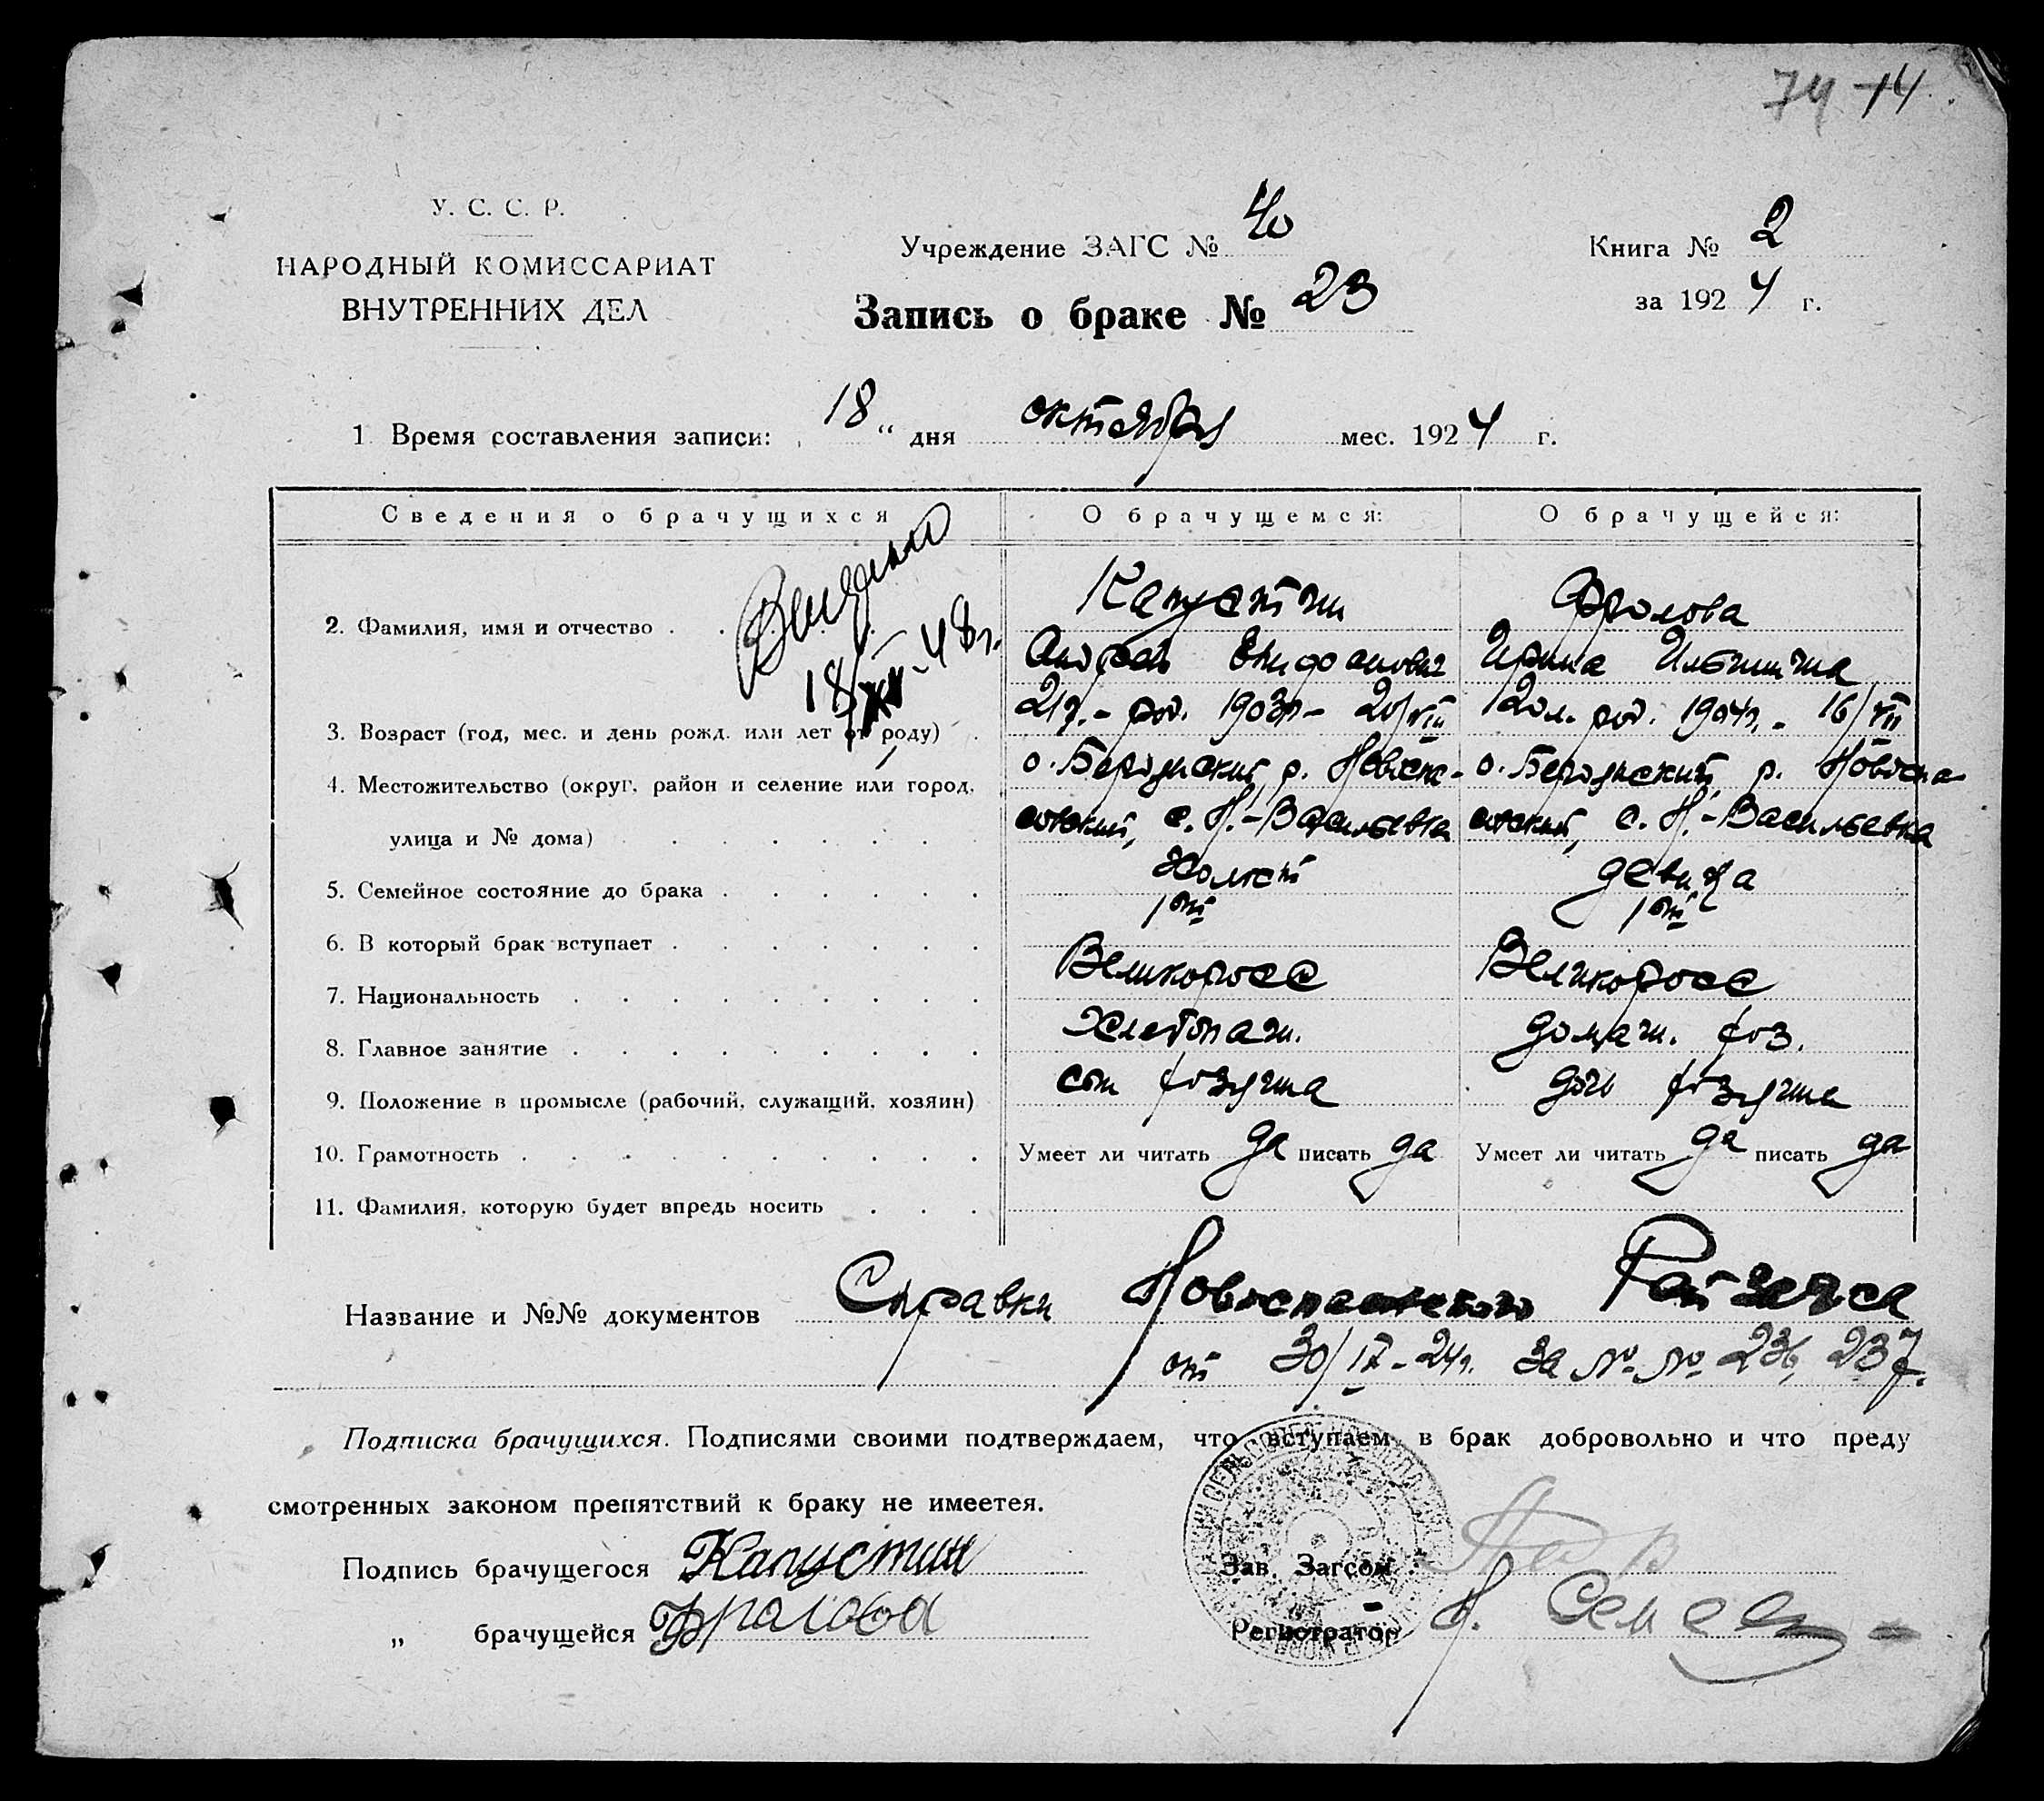 74 14
У. С. С. Р.
НАРОДНЫЙ КОМИССАРИАТ
ВНУТРЕННИХ ДЕЛ
Учреждение ЗАГС № 40
Запись о браке № 23
Книга № 2
за 1924 г.
1 Время составления записи: 18 " дня октября мес. 1924 г.
Сведения о брачущихся О брачущемся: О брачущейся:
Капустин Фролова
2. Фамилия, имя и отчество
Андрей Епифанович Ирина Ильинична
18/XII-48г.
21г.- род. 1903г- 20/VIII 20л. род. 1904г.- 16/VII
3. Возраст (год, мес. и день рожд. или лет от роду)
о. Бердянский, р. Новоспа- о. Бердянский, р. Новоспа-
4. Местожительство (округ, район и селение или город,
совский, с. Н.-Васильевка совский, с. Н.-Васильевка
улица и № дома)
5. Семейное состояние до брака холост девица
6. В который брак вступает 1ый 1ый
7. Национальность Великоросс Великоросс
8. Главное занятие Хлебопаш. домаш. хоз.
9. Положение в промысле (рабочий, служащий, хозяин) сын хозяина дочь хозяина
10. Грамотность Умеет ли читать да писать да Умеет ли читать да писать да
11. Фамилия, которую будет впредь носить
Название и №№ документов Справки Новоспасовского Райзагса
от 30/IX-24г. за №№ 236, 237.
Подписка брачущихся. Подписями своими подтверждаем, что вступаем в брак добровольно и что преду
смотренных законом препятствий к браку не имеется.
Подпись брачущегося Капустин Зав. Загсом
" брачущейся Фролова Регистратор